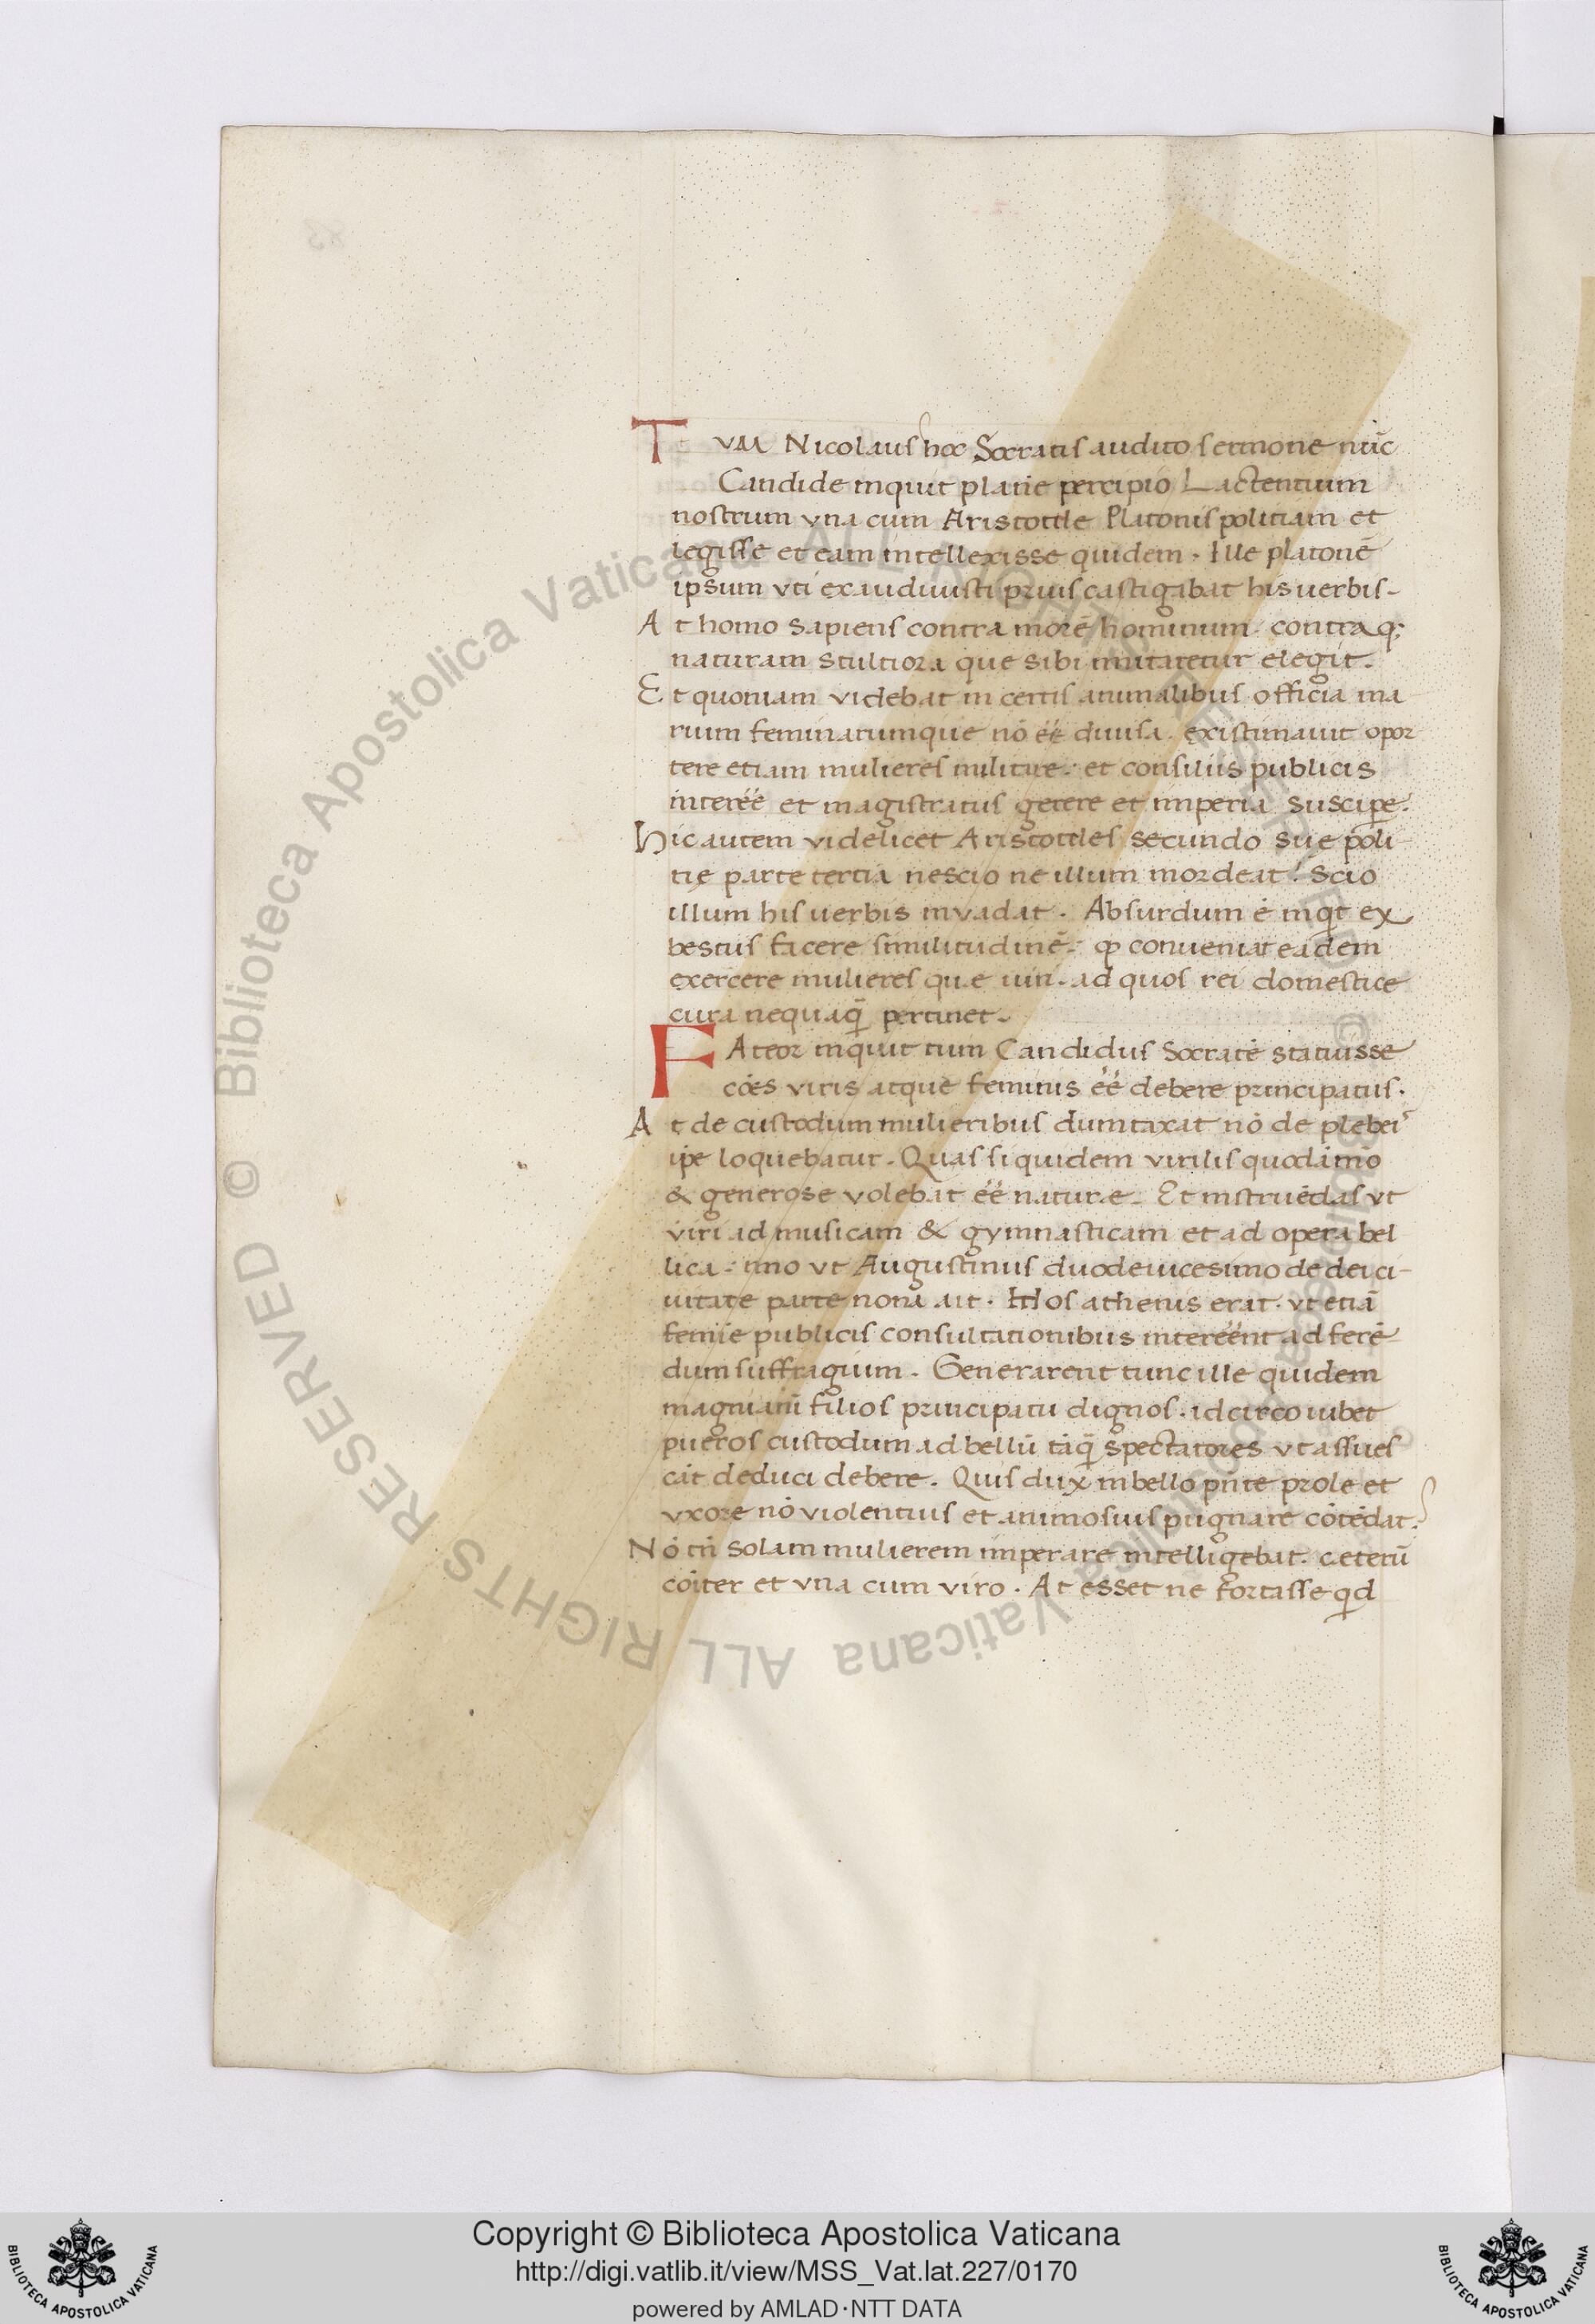 TVM Nicolaus hoc Socratis audito sermone nūc
Candide inquit plane percipio Lactentium
nostrum vna cum Aristotile Platonis politiam et
legisse et eam intellexisse quidem. Ille platonē
ipsum vti exaudiuisti prius castigabat his uerbis.
At homo sapiens contra morē hominum. contraq;
naturam stultiora que sibi imitaretur elegit.
Et quoniam videbat in certis animalibus officia ma
rium feminarumque nō eē diuisa. existimauit opor
tere etiam mulieres militare. et consiliis publicis
intereē et magistratus gerere et imperia suscipe.
Hic autem videlicet Aristotiles secundo sue poli
tie parte tertia nescio ne illum mordeat? Scio
illum his uerbis inuadat. Absurdum ē inqt ex
bestiis facere similitudinē. qp conueniat eadem
exercere mulieres que uiri. ad quos rei domestice
cura nequaq̄ pertinet.
FAteor inquit tum Candidus Socratē statuisse
cōes viris atque feminis eē debere principatus.
At de custodum mulieribus dumtaxat nō de plebeis
ipe loquebatur. Quas siquidem virilis quodāmō
& generose volebat eē nature. Et instruēdas vt
viri ad musicam & gymnasticam et ad opera bel
lica. imo vt Augustinus duodeuicesimo de dei ci-
uitate parte nona ait. Mos athenis erat. vt etiā
femīe publicis consultationibus intereēnt ad ferē
dum suffragium. Generarent tunc ille quidem
magnianī filios principatu dignos. idcirco iubet
pueros custodum ad bellū tāq̄ spectatores vt assues
cāt deduci debere. Quis dux in bello pn̄te prole et
vxore nō violentius et animosius pugnare cōtēdat.
Nō tn̄ solam mulierem imperare intelligebat. ceterū
cōiter et vna cum viro. At esset ne fortasse qid
Copyright © Biblioteca Apostolica Vaticana
http://digi.vatlib.it/view/MSS_Vat.lat.227/0170
powered by AMLAD·NTT DATA
BIBLIOTECA APOSTOLICA VATICANA
BIBLIOTECA APOSTOLICA VATICANA
© Biblioteca Apostolica Vaticana ALL RIGHTS RESERVED © Biblioteca Apostolica Vaticana ALL RIGHTS RESERVED